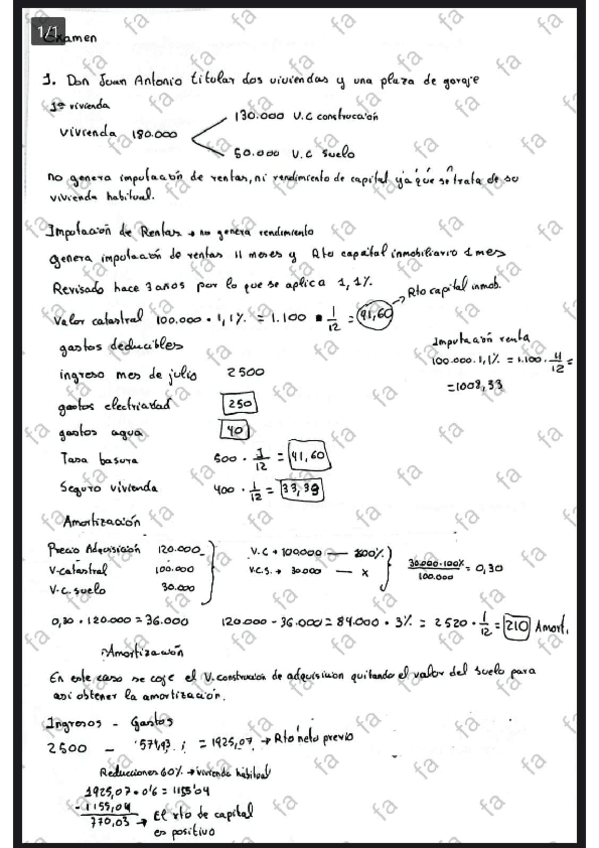 1/1
Examen
1. Don Juan Antonio titular dos viviendas y una plaza de garaje
1ª vivienda
vivienda 180.000
130.000 V.C construcción
50.000 V.C suelo
no genera imputación de rentas, ni rendimiento de capital ya que se trata de su
vivienda habitual.
Imputación de Rentas → no genera rendimiento
genera imputación de rentas 11 meses y Rto capital inmobiliario 1 mes
Revisado hace 3 años por lo que se aplica 1,1%.
Rto capital inmob.
Valor catastral 100.000 · 1,1% = 1.100 · 1/12 = 91,60
Imputación renta
100.000 · 1,1% = 1.100 · 11/12 =
= 1008,33
gastos deducibles
ingreso mes de julio 2500
gastos electricidad 250
gastos agua 40
Tasa basura 500 · 1/12 = 41,60
Seguro vivienda 400 · 1/12 = 33,33
Amortización
Precio Adquisición 120.000
V.catastral 100.000
V.C. suelo 30.000
V.C → 100.000 — 100%
V.C.S. → 30.000 — x
30.000·100% / 100.000 = 0,30
0,30 · 120.000 = 36.000 120.000 - 36.000 = 84.000 · 3% = 2520 · 1/12 = 210 Amort.
Amortización
En este caso se coje el V.construcción de adquisicion quitando el valor del suelo para
asi obtener la amortización.
Ingresos - Gastos
2500 - 574,93 = 1925,07 → Rto neto previo
Reducciones 60% → vivienda habitual
1925,07 · 0'6 = 1155'04
- 1155,04
770,03 → El rto de capital
es positivo